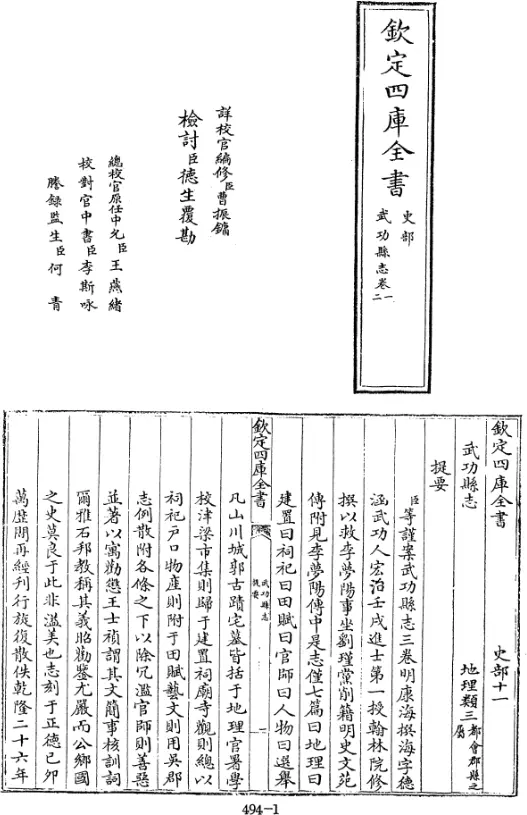 欽定四庫全書
史部
武功縣志卷一
二
詳校官編修臣曹振鏞
檢討臣德生覆勘
總校官原任中允臣王燕緒
校對官中書臣李斯咏
謄錄監生臣何青
欽定四庫全書
史部十一
武功縣志
地理類三都會郡縣之屬
提要
臣等謹案武功縣志三卷明康海撰海字德
涵武功人宏治壬戌進士第一授翰林院修
撰以救李夢陽事坐劉瑾黨削籍明史文苑
傳附見李夢陽傳中是志僅七篇曰地理曰
建置曰祠祀曰田賦曰官師曰人物曰選舉
欽定四庫全書
武功縣志
提要
一
凡山川城郭古蹟宅墓皆括于地理官署學
校津梁市集則歸于建置祠廟寺觀則總以
祠祀戸口物產則附于田賦藝文則用吳郡
志例散附各條之下以除冗濫官師則善惡
並著以寓勸懲王士禎謂其文簡事核訓詞
爾雅石邦教稱其義昭勸鑒尤嚴而公鄉國
之史莫良于此非濫美也志刻于正德己卯
萬歴間再經刊行旋復散佚乾隆二十六年
494-1